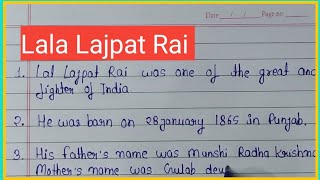 Date / / Page no:
Lala Lajpat Rai
1. Lal Lajpat Rai was one of the great and
fighter of India
2. He was barn on 28 january 1865 in Punjab,
3. His father's name was Munshi Radha krishna
Mother's name was Gulab dev